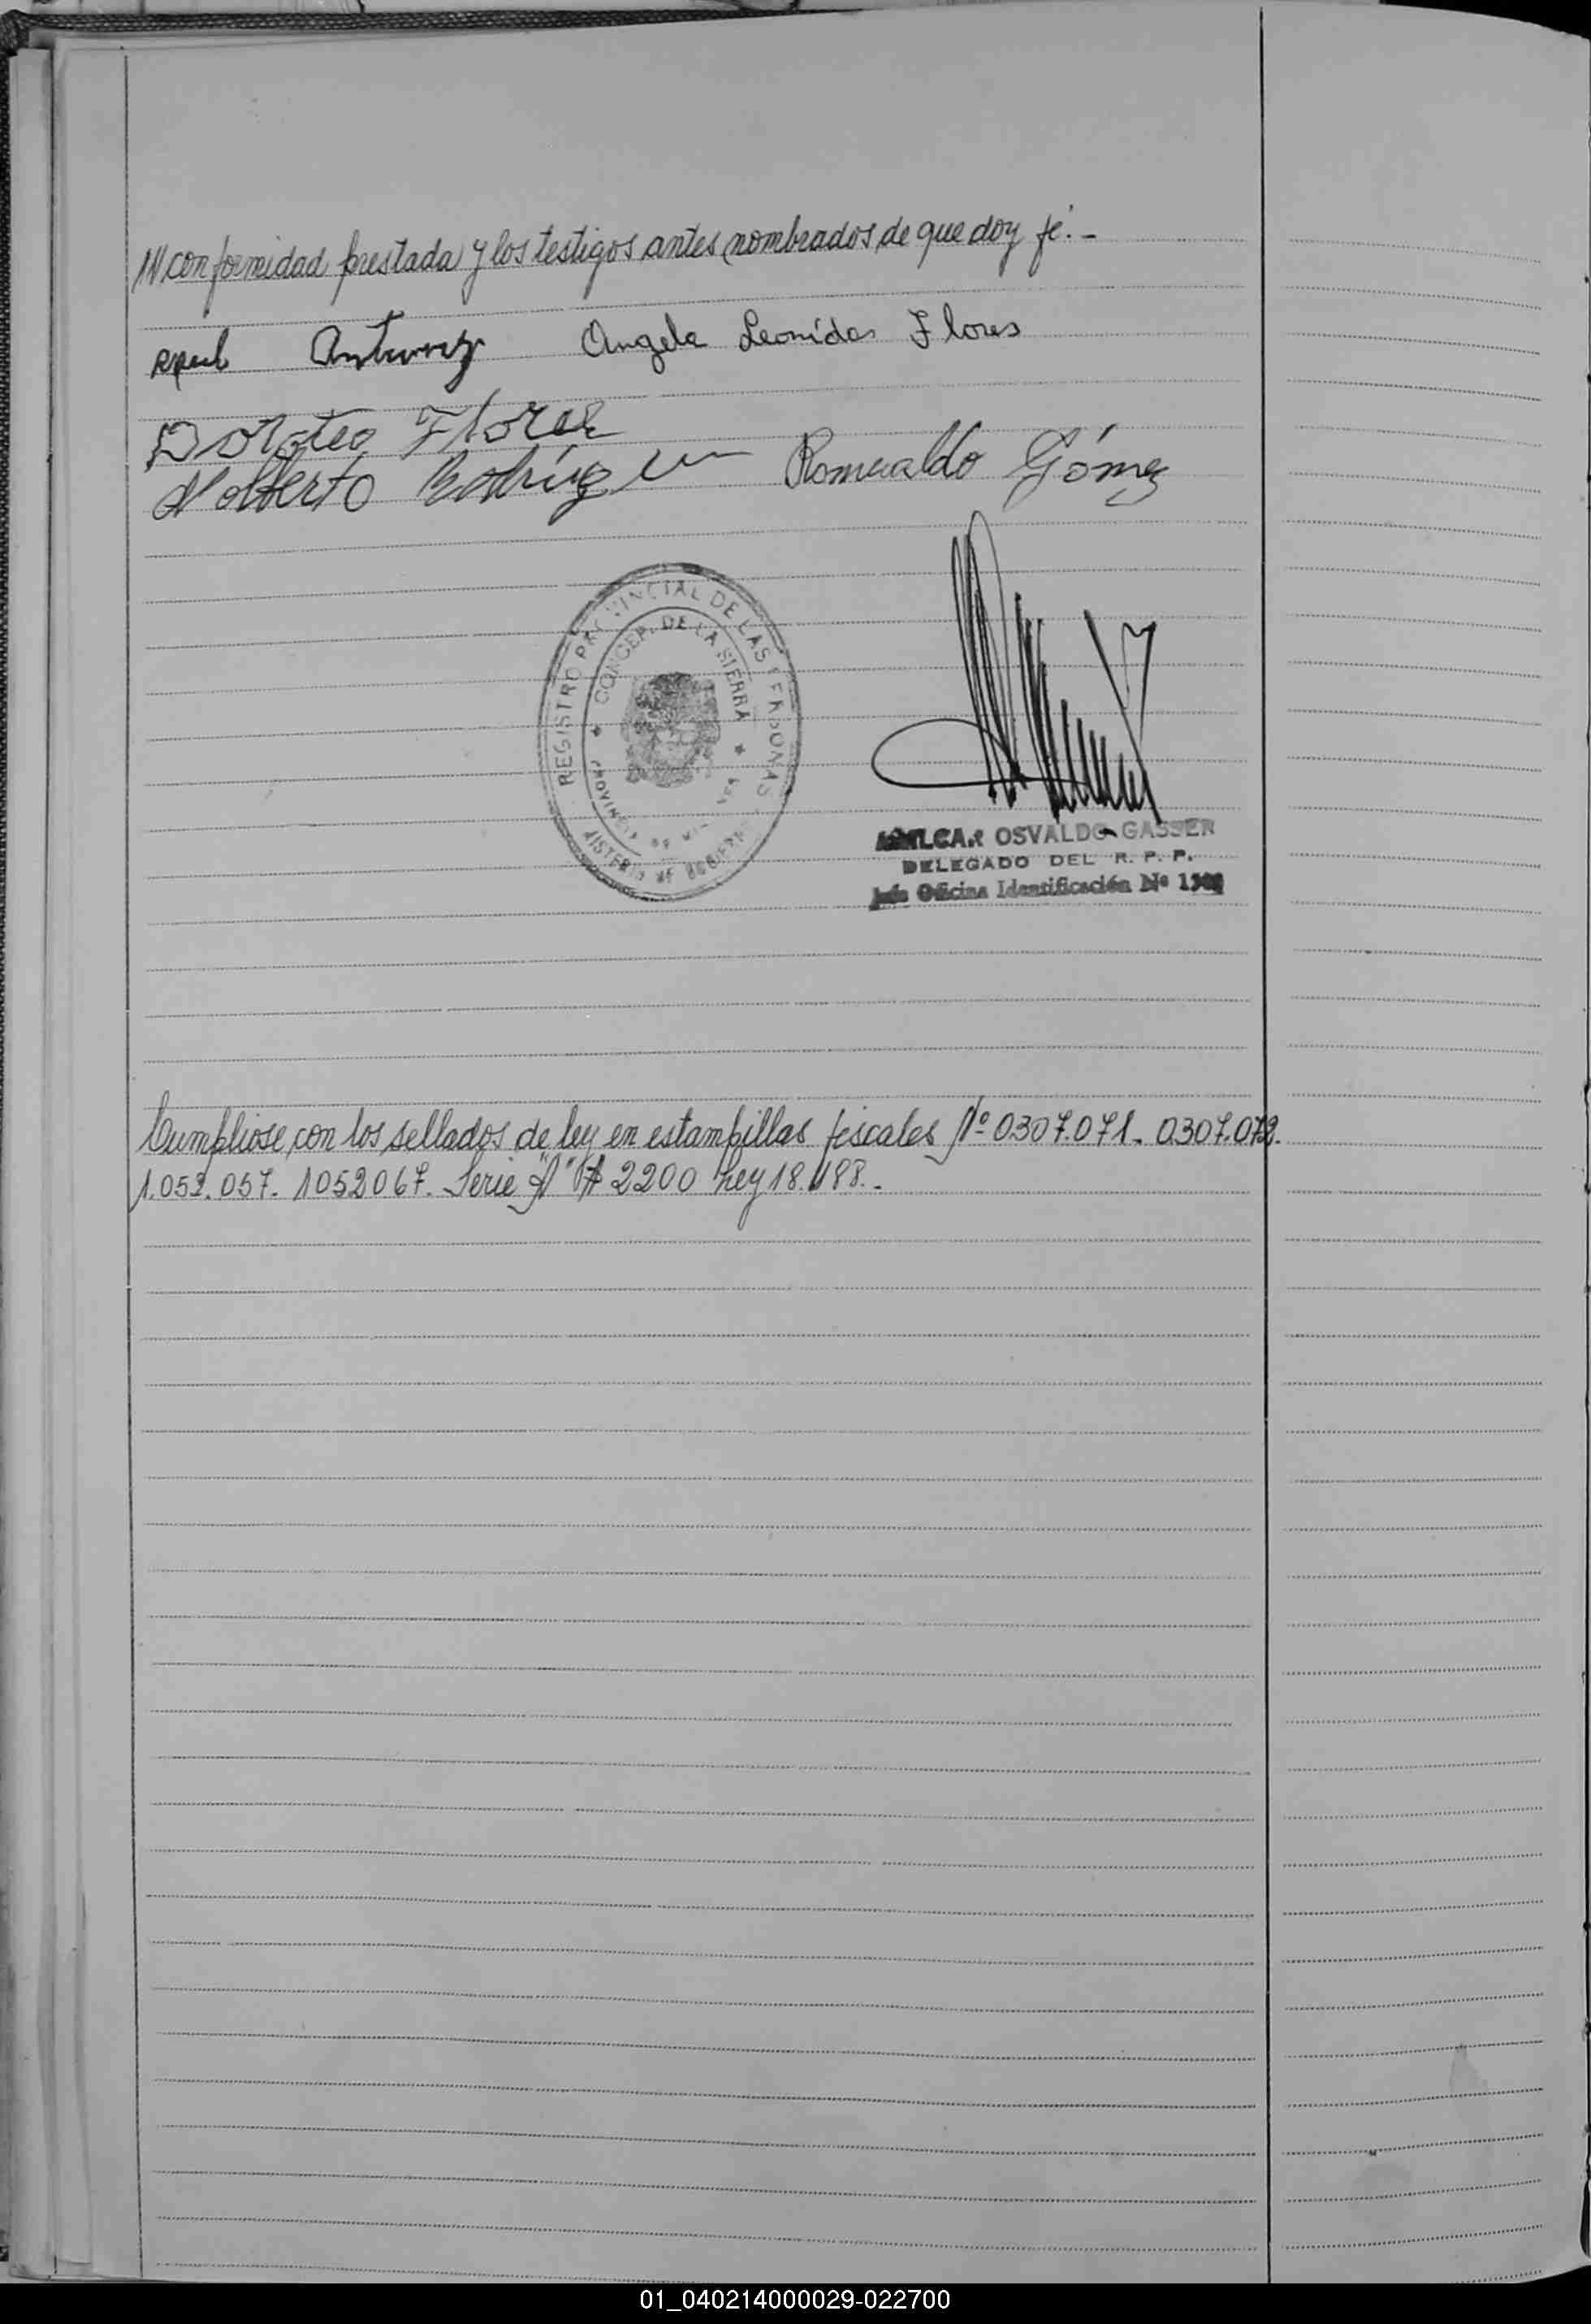 conformidad prestada y los testigos antes nombrados de que doy fé.-
Angela Leonidas Flores
Doroteo Flores
Nolberto Rodríguez Romualdo Gómez
REGISTRO PROVINCIAL DE LAS PERSONAS
CONCEP. DE LA SIERRA
PROVINCIA DE
OSVALDO GASSER
DELEGADO DEL R. P. P.
Jefe Oficina Identificación Nº
Cumpliose con los sellados de ley en estampillas fiscales Nº 0307.071. 0307.072.
1.052.057. 1052067. Serie "A" $ 2200 Ley 18.188.-
01_040214000029-022700